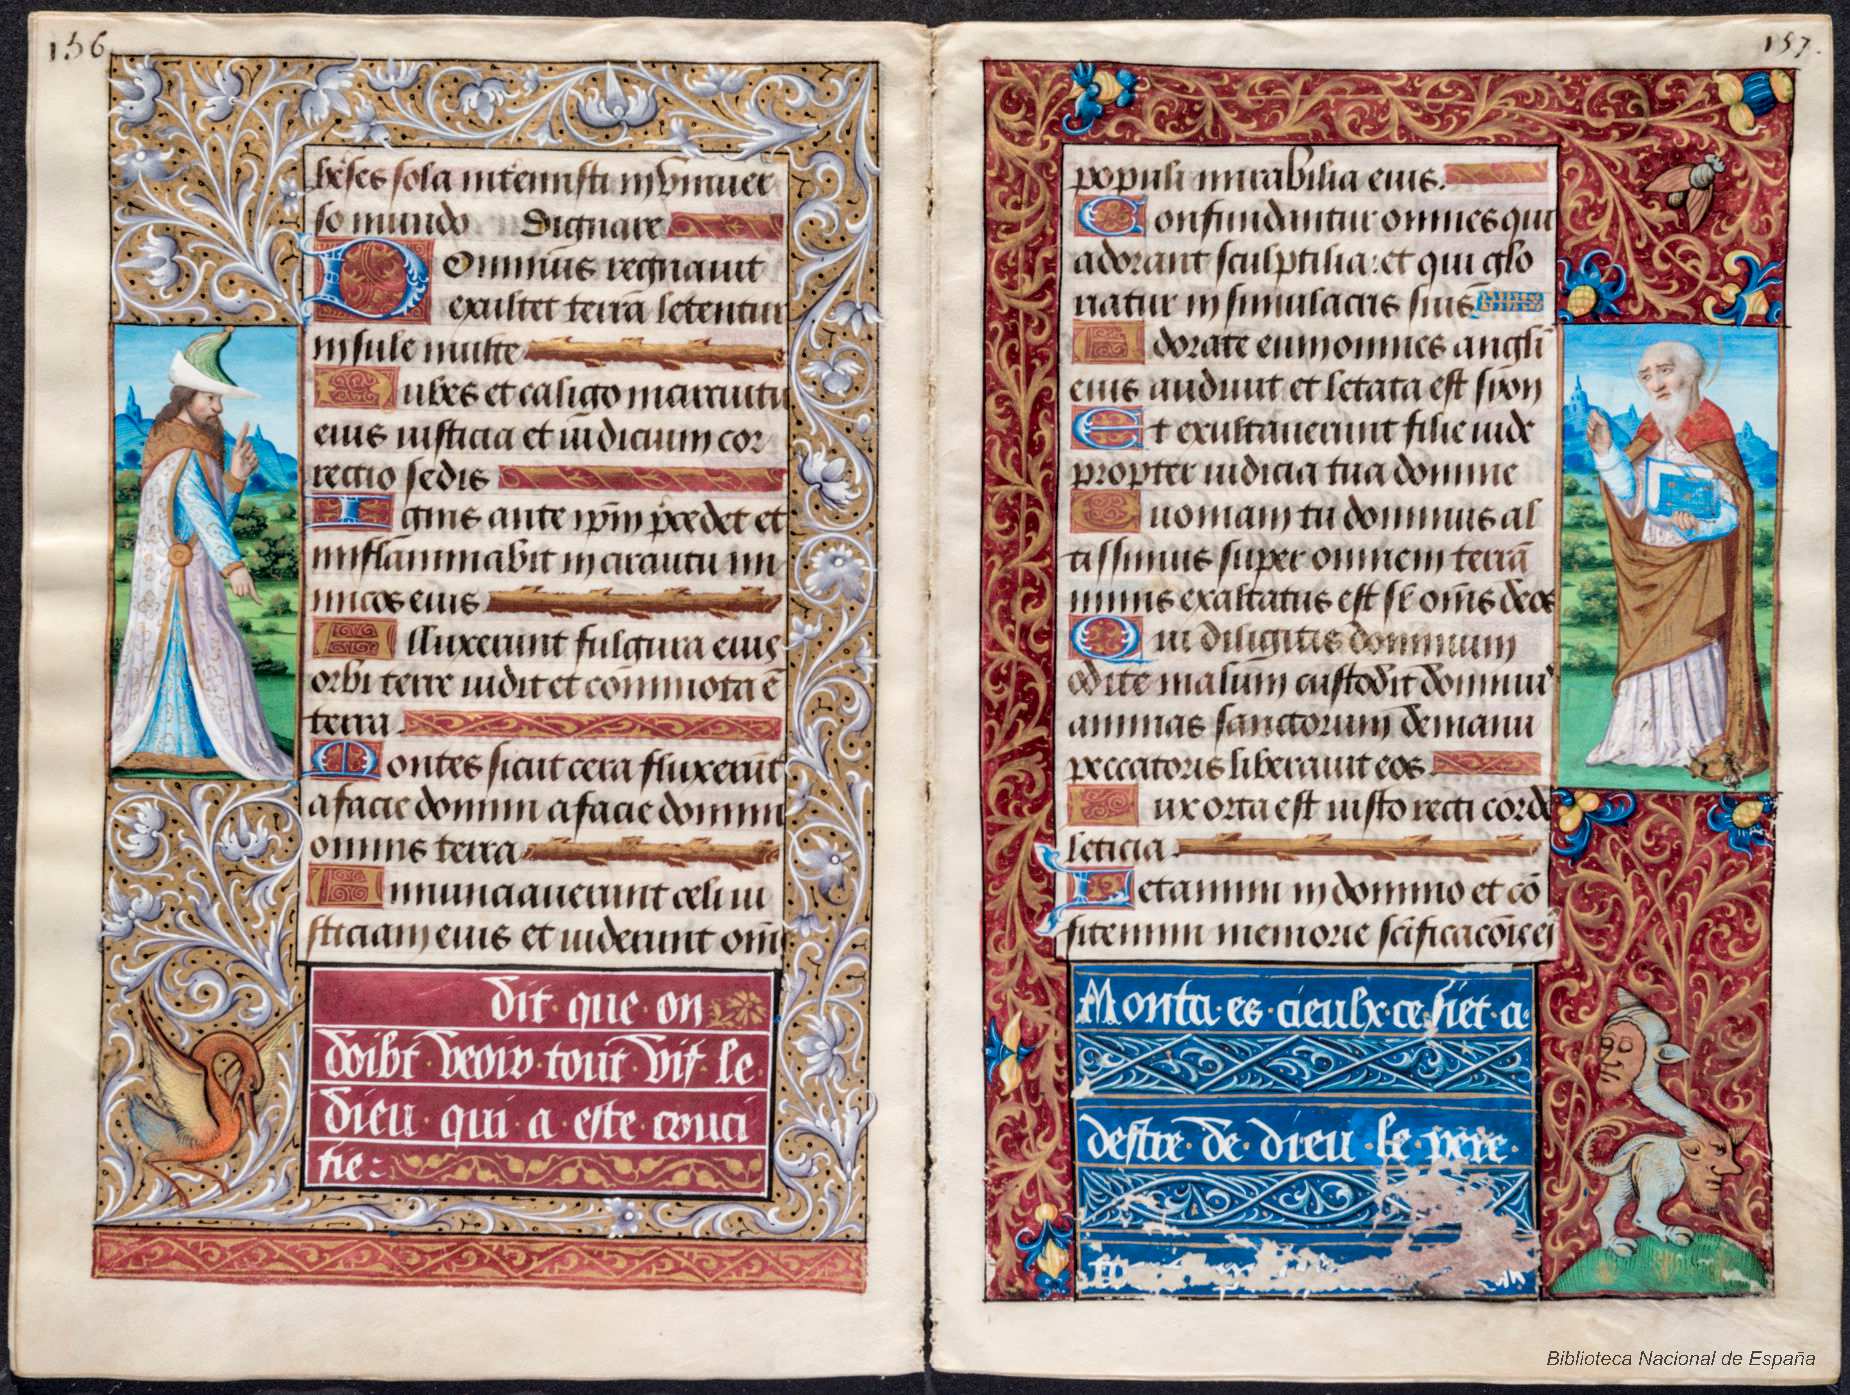 156
heses sola interemisti in univer
so mundo Dignare
Dominus regnavit
exultet terra letentur
insule multe
Nubes et caligo in circuitu
eius iusticia et iudicium cor
rectio sedis
Ignis ante ipm precedet et
inflammabit in circuitu ini
micos eius
Alluxerunt fulgura eius
orbi terre vidit et commota e
terra
Montes sicut cera fluxerunt
a facie domini a facie domini
omnis terra
Annunciaverunt celi iu
sticiam eius et viderunt oms
dit · que · on
doibt · veoir · tout · vif · le
dieu · qui · a · este · cruci
fie
157.
populi mirabilia eius.
Confundantur omnes qui
adorant sculptilia: et qui glo
riatur in simulacris suis
Adorate eum omnes angli
eius audivit et letata est syon
Et exultaverunt filie iude
propter iudicia tua domine
Quoniam tu dominus al
tissimus super omnem terra
nimis exaltatus est sr oms deos
Qui diligitis dominum
odite malum custodit dominus
animas sanctorum de manu
peccatoris liberavit eos
Lux orta est iusto recti corde
leticia
Letamini in domino et co
fitemini memorie scificacois ei
Monta · es · cieulx · ce · siet · a ·
destre · de · dieu · le · pere ·
Biblioteca Nacional de España